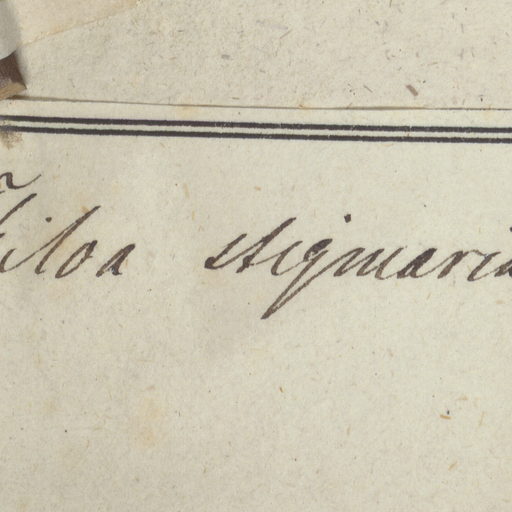 Filoa stigmaria